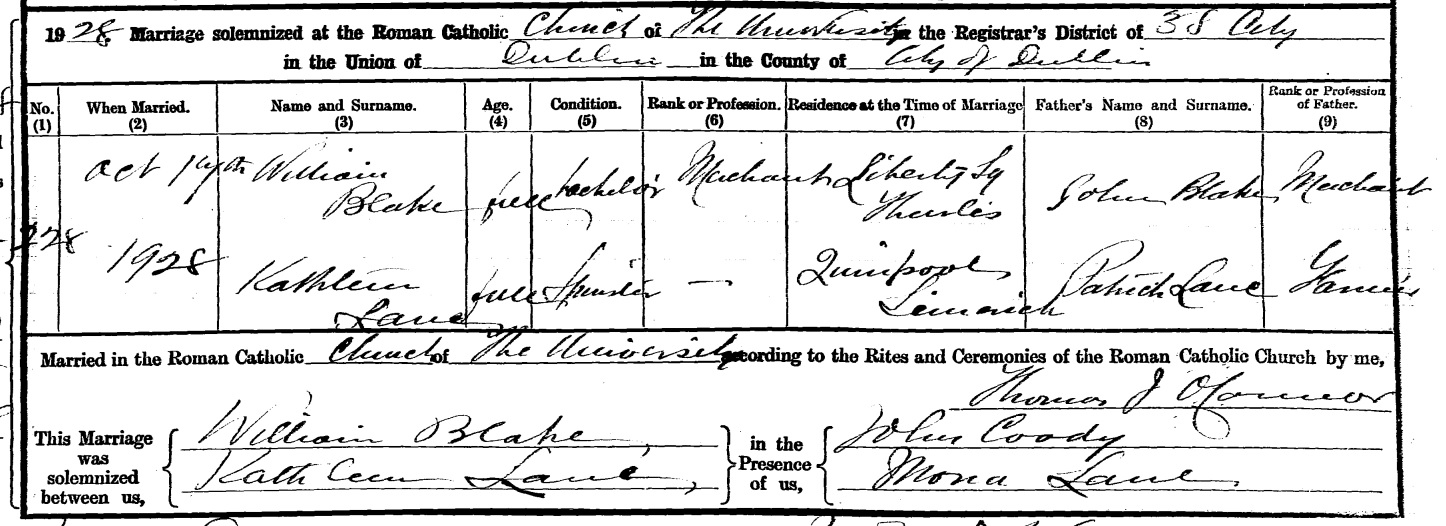 1928. Marriage solemnized at the Roman Catholic Church of The University in the Registrar's District of 38 City
in the Union of Dublin in the County of City of Dublin
No. When Married. Name and Surname. Age. Condition. Rank or Profession. Residence at the Time of Marriage Father's Name and Surname. Rank or Profession of Father.
(1) (2) (3) (4) (5) (6) (7) (8) (9)
Oct 14th William Blake full bachelor Merchant Liberty Sq Thurles John Blake Merchant
228 1928 Kathleen Lane full Spinster — Limerick Patrick Lane Farmer
Married in the Roman Catholic Church of The University according to the Rites and Ceremonies of the Roman Catholic Church by me,
Thomas J O'Connor
This Marriage was solemnized between us,
William Blake
Kathleen Lane
in the Presence of us,
John Coody
Mona Lane